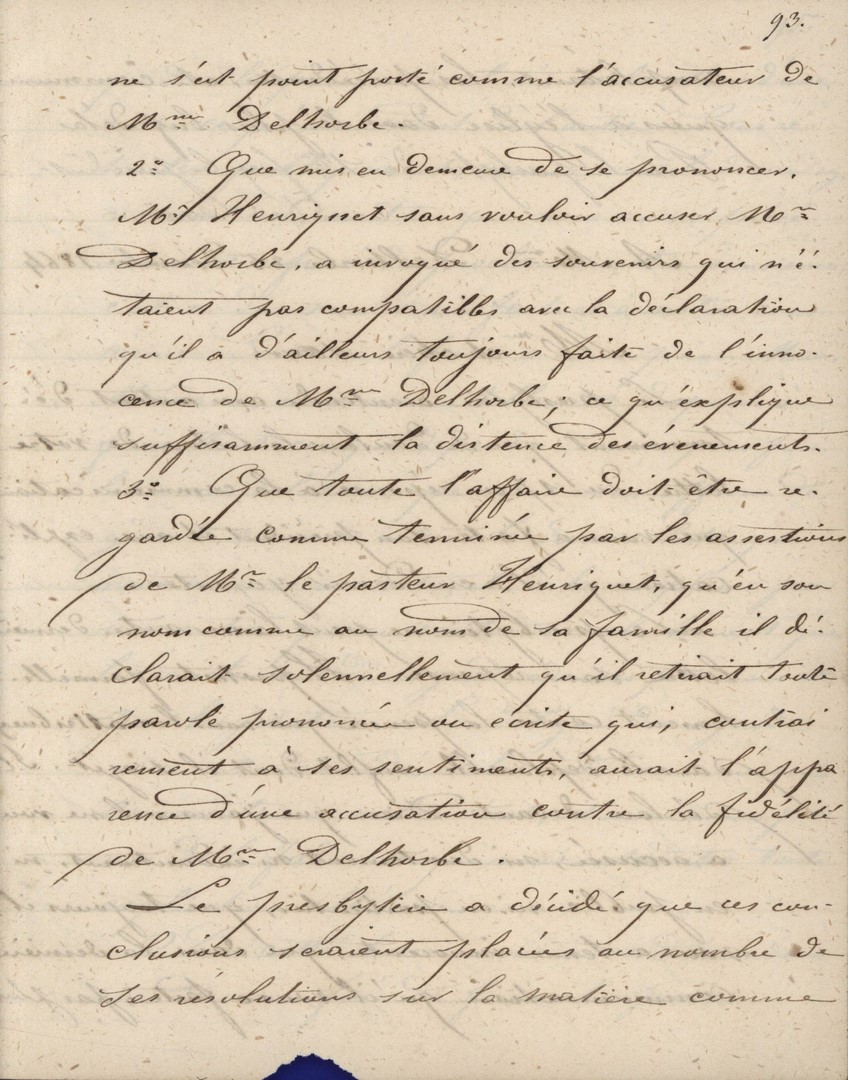 93.
ne s'est point porté comme l'accusateur de
Mme Delhorbe.
2o Que mis en demeure de se prononcer,
Mr Henriquet sans vouloir accuser Mme
Delhorbe, a invoqué des souvenirs qui n'é-
taient pas compatibles avec la déclaration
qu'il a d'ailleurs toujours faite de l'inno-
cence de Mme Delhorbe; ce qu'explique
suffisamment la distence des évenements.
3o Que toute l'affaire doit être re-
gardée comme terminée par les assertions
de Mr le pasteur Henriquet, qu'en son
nom comme au nom de sa famille il dé-
clarait solennellement qu'il retirait toute
parole prononcée ou ecrite qui, contrai
rement à ses sentiments, aurait l'appa
rence d'une accusation contre la fidélité
de Mme Delhorbe.
Le presbytère a décidé que ces con-
clusions seraient placées au nombre de
ses résolutions sur la matière comme